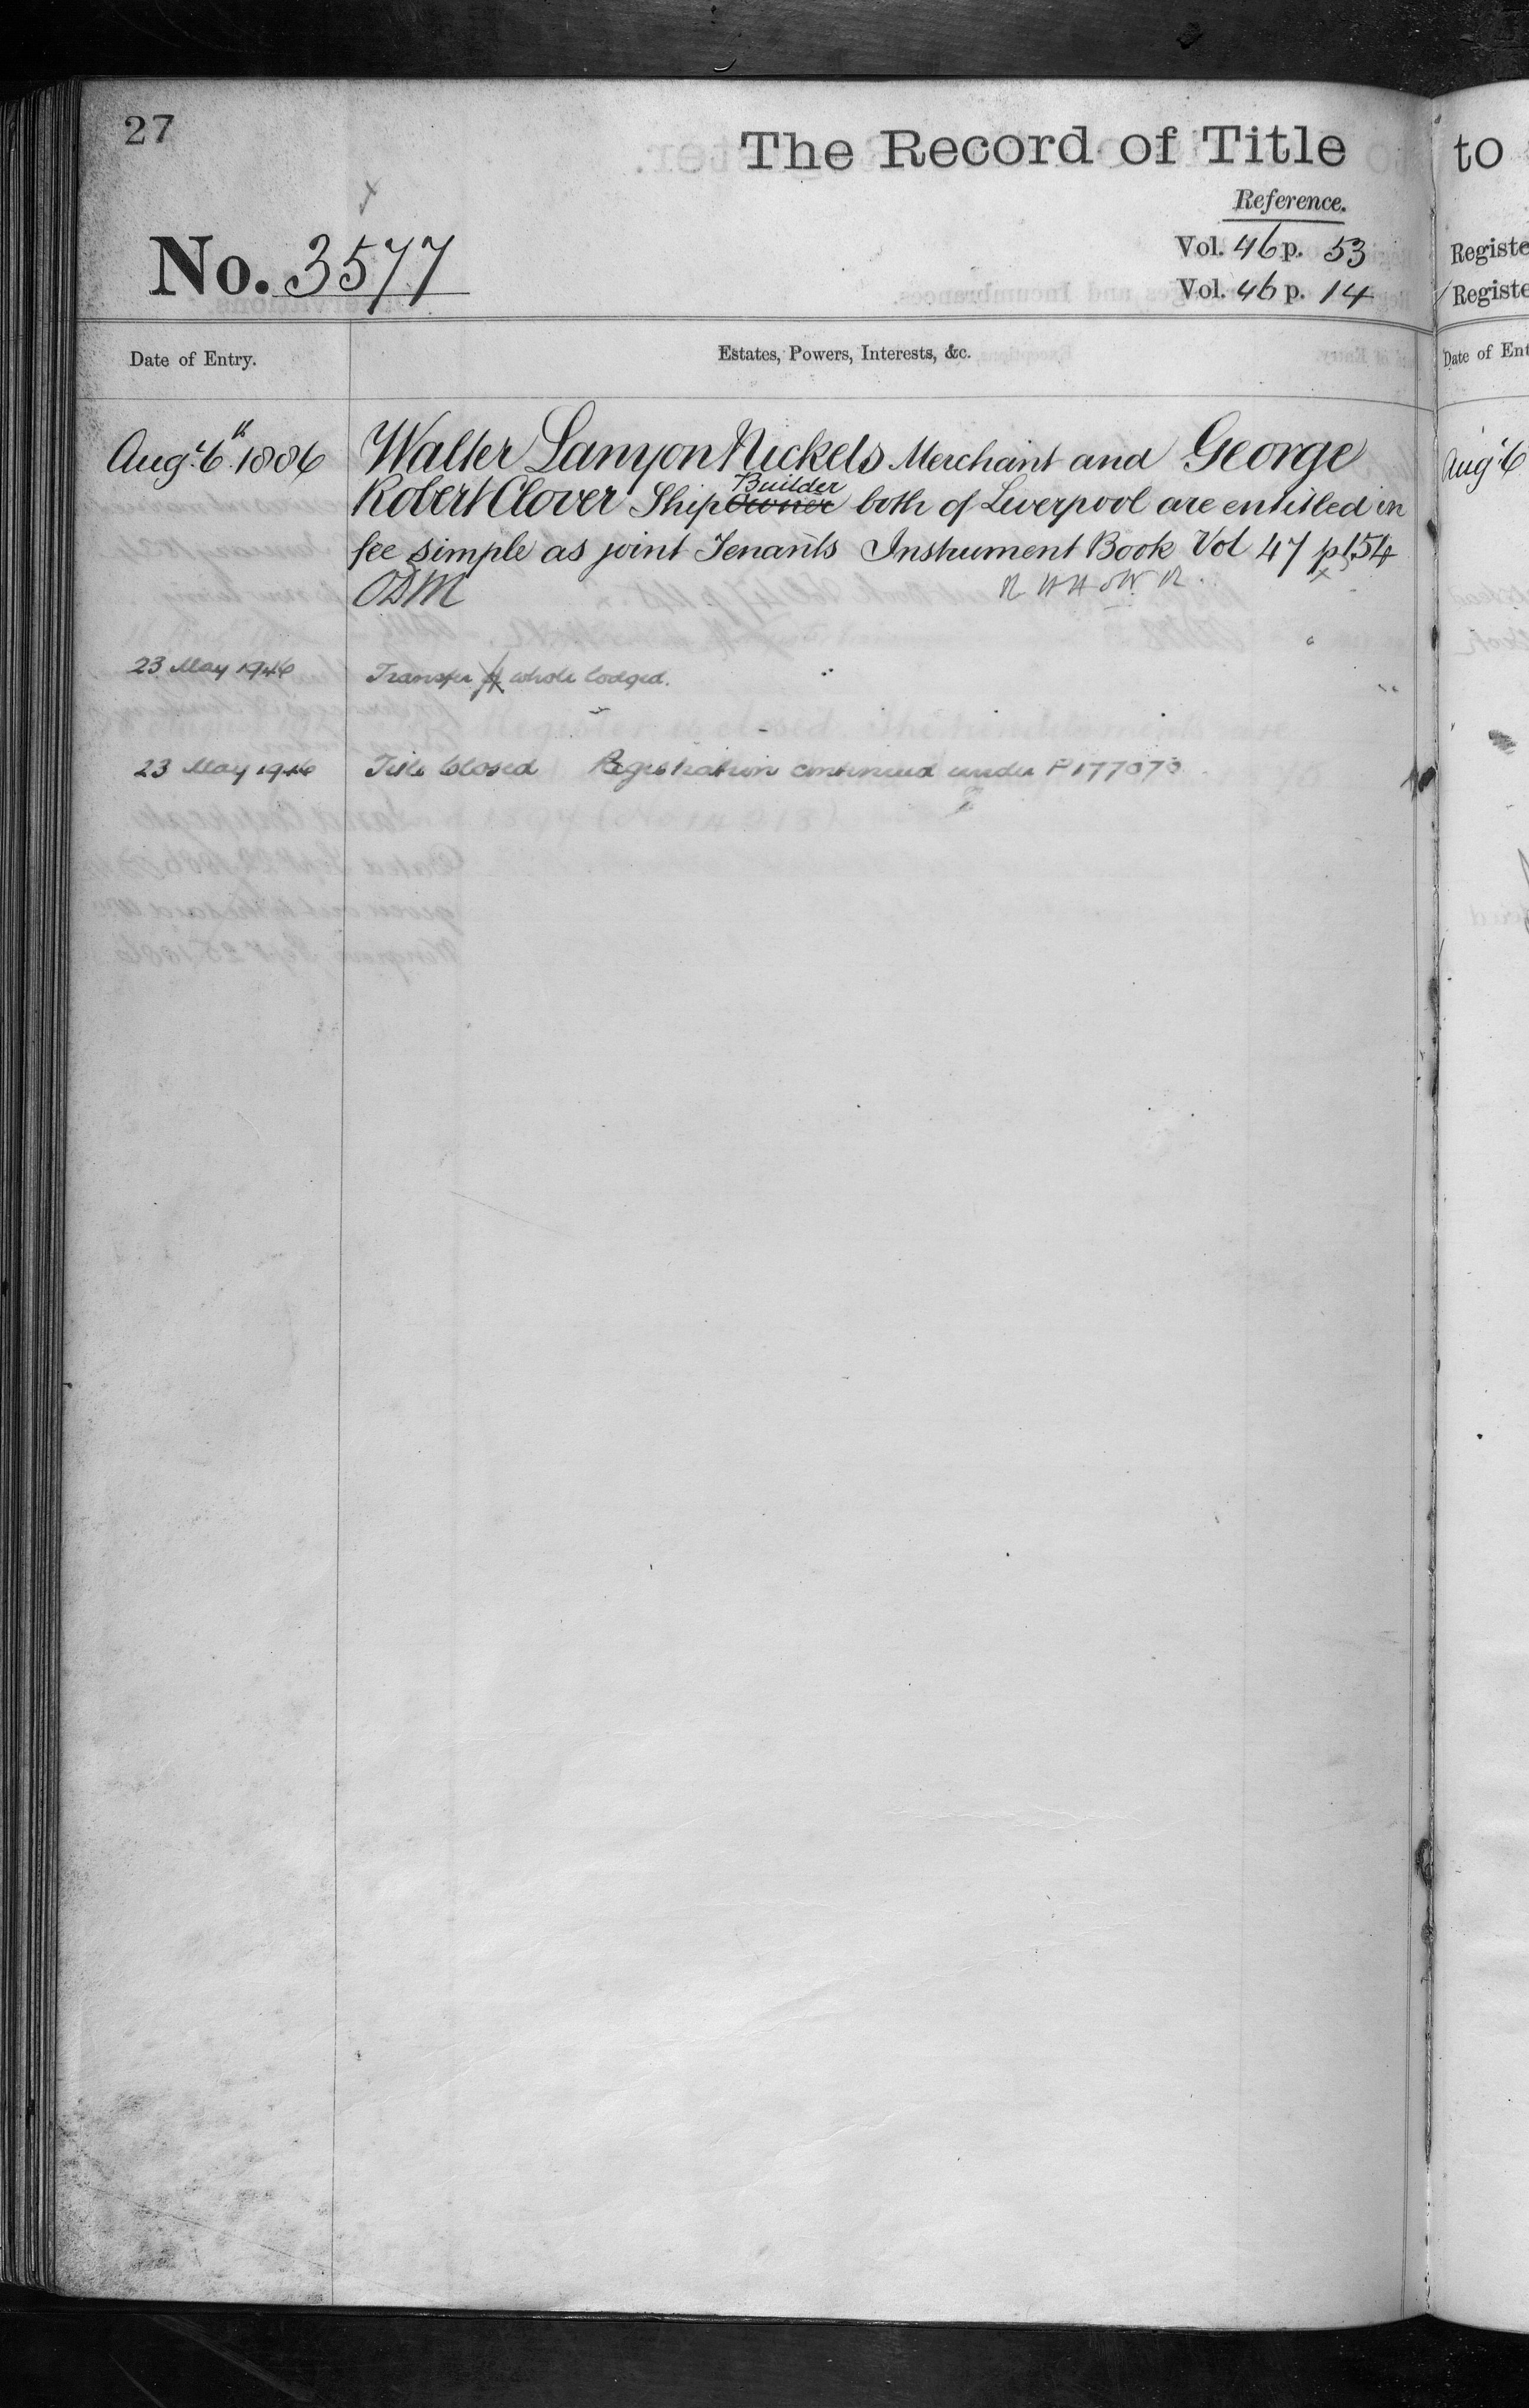 27
The Record of Title
Reference.
No. 3577
Vol. 46 p. 53
Vol. 46 p. 14
Date of Entry.
Estates, Powers, Interests, &c.
Augt 6th 1886
Walter Lanyon Nickels Merchant and George
Builder
Robert Clover Ship Owner both of Liverpool are entitled in
fee simple as joint Tenants Instrument Book Vol 47 p 154
ODM
23 May 1946
Transfer of whole lodged.
23 May 1946
Title Closed Registration continued under P177073
to
Registe
Registe
Date of Ent
Augt 6